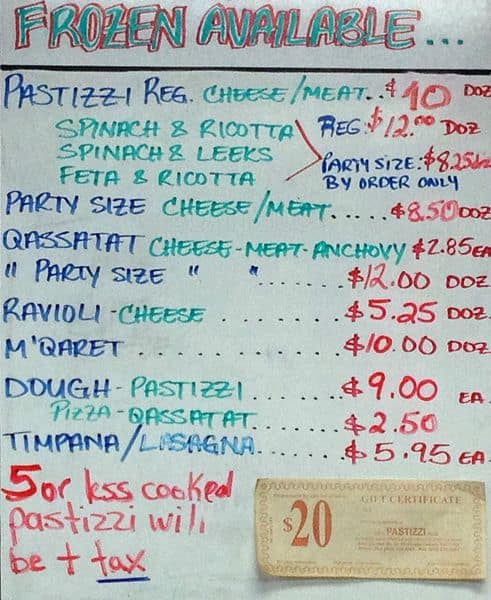 FROZEN AVAILABLE...
PASTIZZI REG. CHEESE/MEAT..$10 DOZ
SPINACH & RICOTTA REG. $12.00 DOZ
SPINACH & LEEKS
FETA & RICOTTA
PARTY SIZE: $8.25
BY ORDER ONLY
PARTY SIZE CHEESE/MEAT.....$8.50 DOZ
QASSATAT CHEESE-MEAT-ANCHOVY $2.85 EA
" PARTY SIZE " "........$12.00 DOZ
RAVIOLI-CHEESE.......$5.25 DOZ
M'QARET..........$10.00 DOZ
DOUGH-PASTIZZI....$9.00 EA
PIZZA-QASSATAT.....$2.50
TIMPANA/LASAGNA......$5.95 EA
5 or less cooked
pastizzi will
be + tax
GIFT CERTIFICATE
$20
PASTIZZI